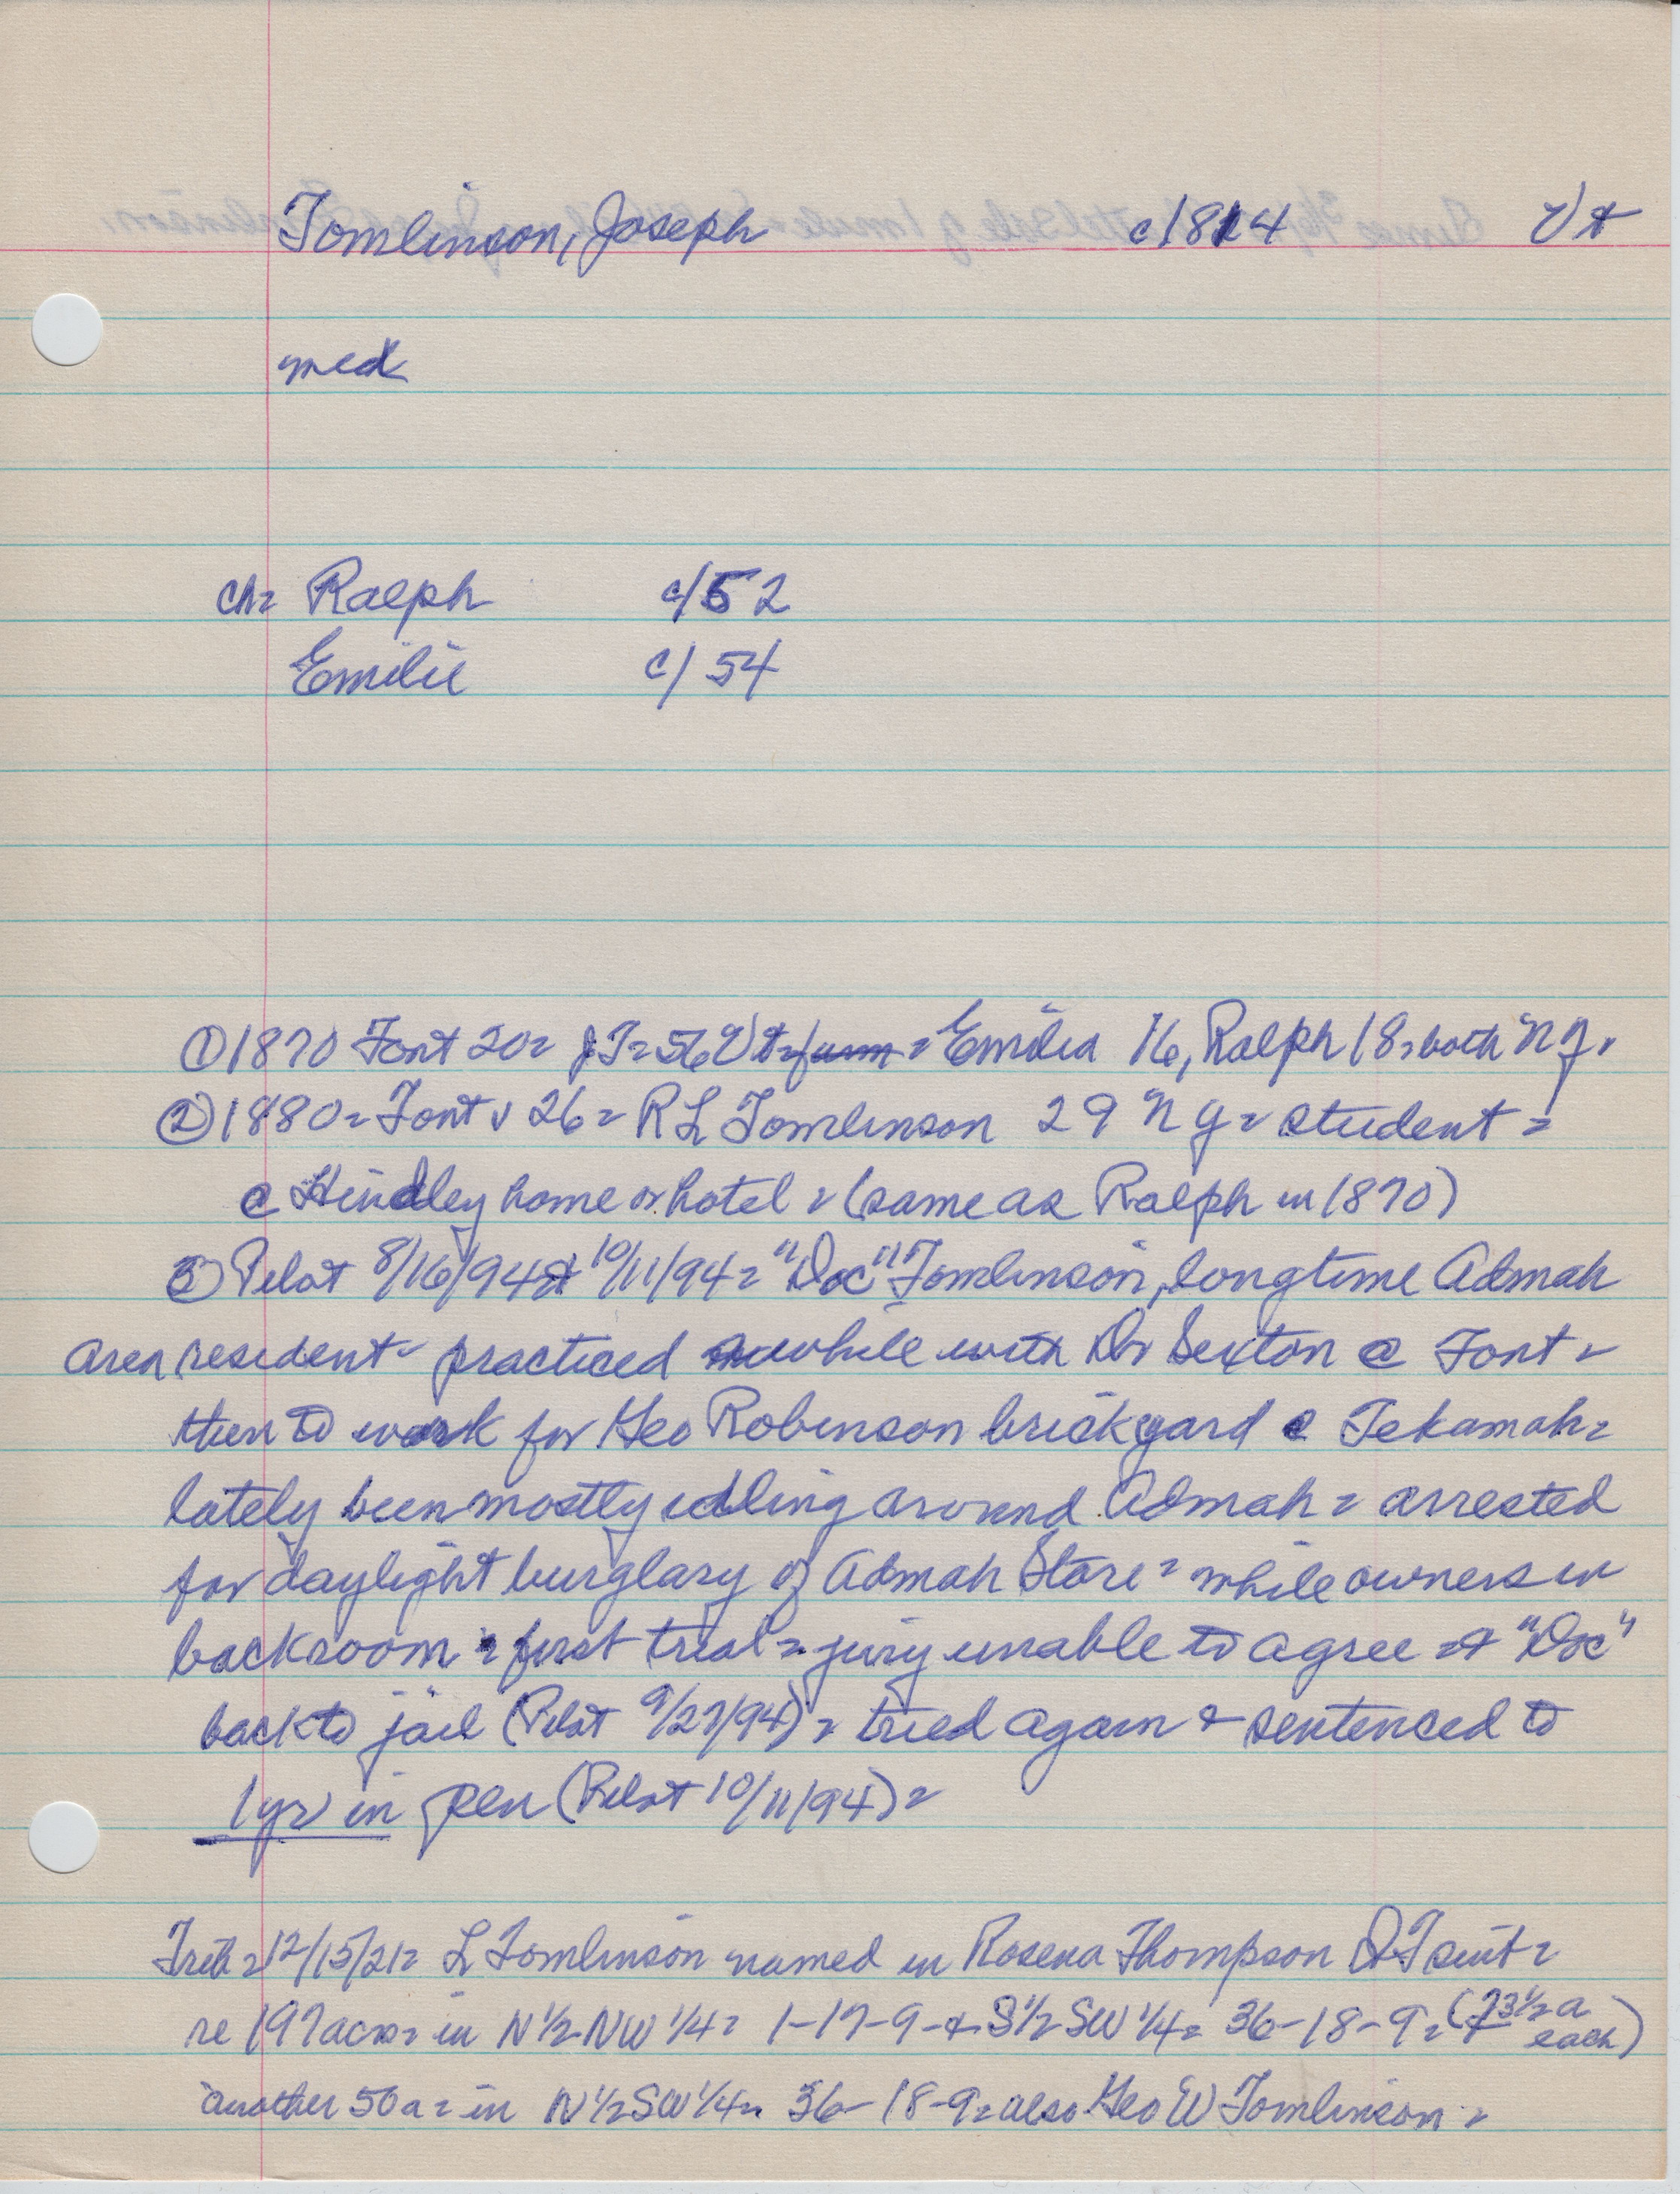 Tomlinson, Joseph c1814 Vt
med
ch= Ralph c/52
Emilie c/54
① 1870 Font 20= JT=56 Vt=farm= Emilia 16, Ralph 18= both NY.
② 1880= Font v 26= R L Tomlinson 29 NY= student=
@ Hindley home or hotel = (same as Ralph in 1870)
③ Pilot 8/16/94 & 10/11/94= "Doc" Tomlinson, longtime Admah
area resident- practiced awhile with Dr Sexton @ Font=
then to work for Geo Robinson brickyard @ Tekamah=
lately been mostly idling around Admah= arrested
for daylight burglary of Admah Store= while owners in
backroom= first trial= jury unable to agree= & "Doc"
back to jail (Pilot 9/27/94)= tried again & sentenced to
1 yr in pen (Pilot 10/11/94)=
Trib= 12/15/21= L Tomlinson named in Rosena Thompson DT suit=
re 197 acres= in N½ NW ¼= 1-17-9-& S½ SW ¼= 36-18-9= (73½ a each)
another 50a= in N½ SW ¼= 36-18-9= also Geo W Tomlinson=